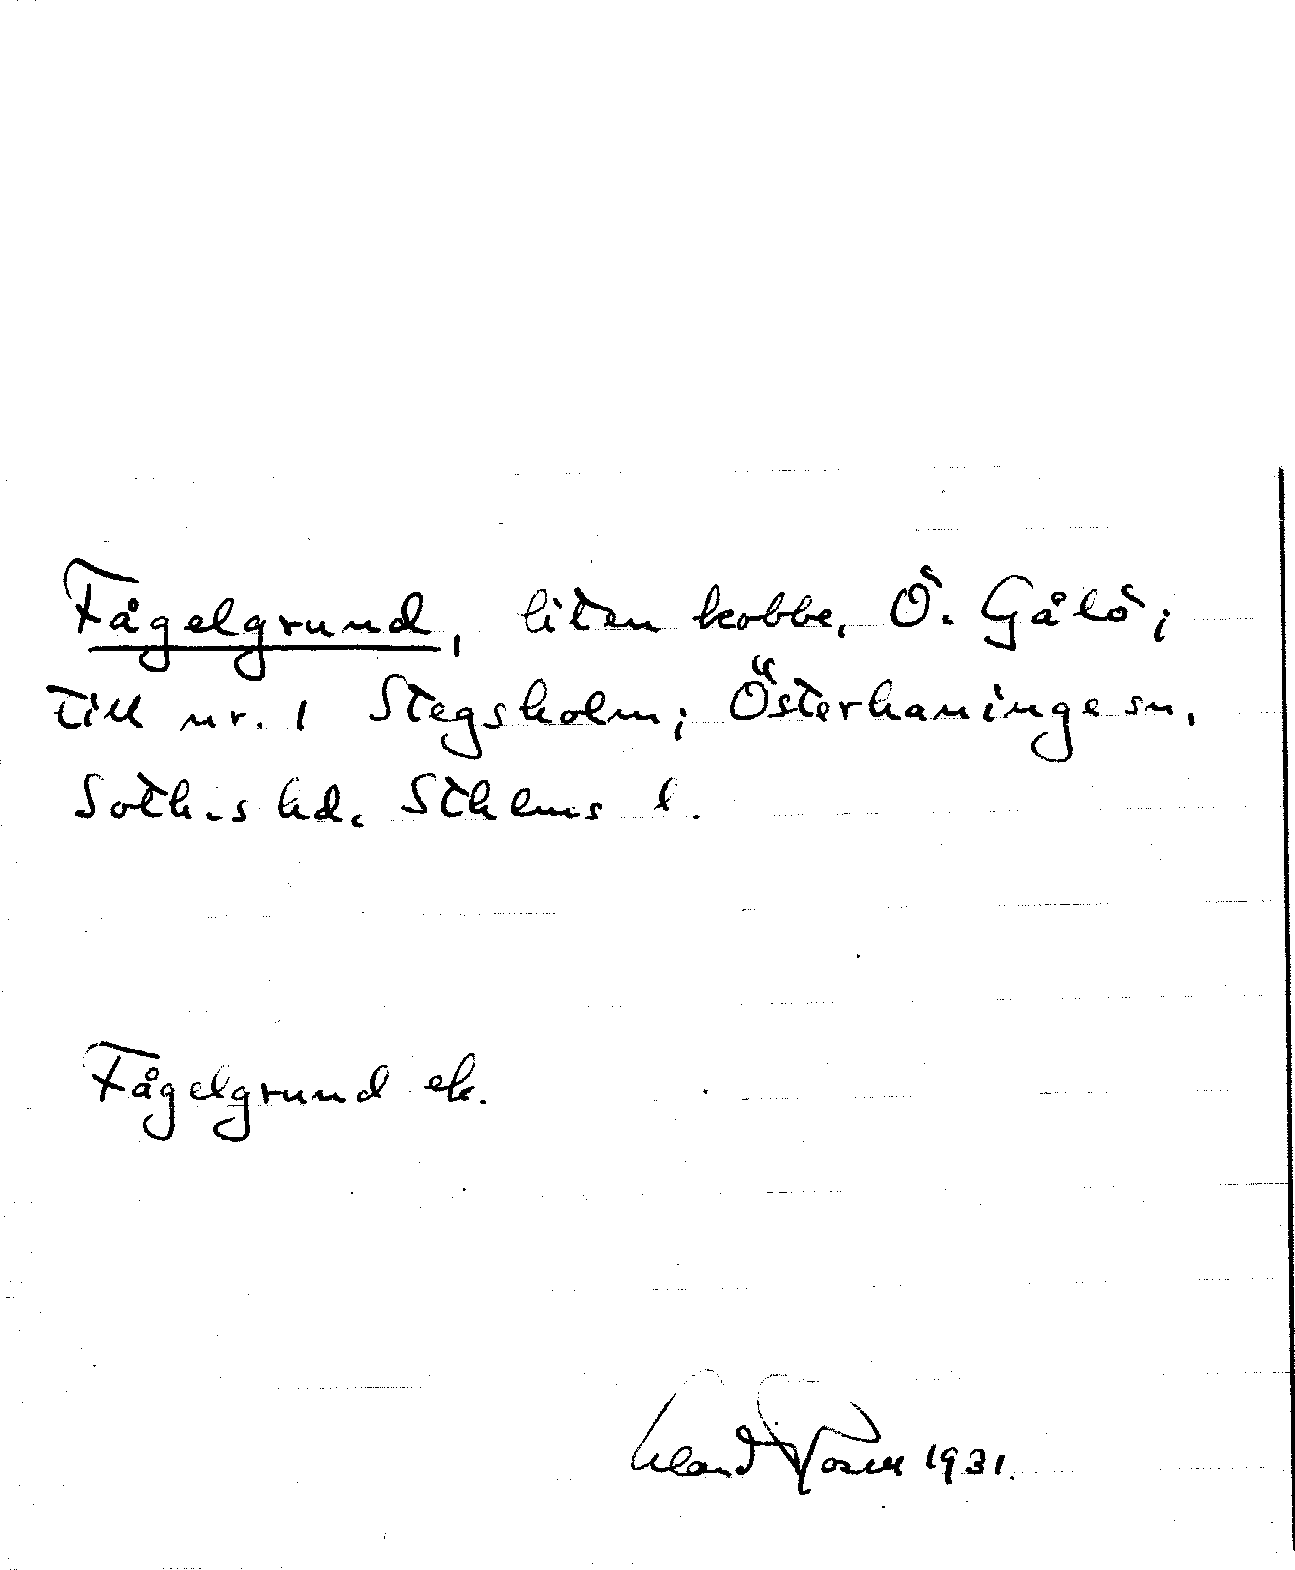 Fågelgrund, liten kobbe, Ö. Gålö;
till nr. 1 Stegsholm; Österhaninge sn,
Soth.s hd. Sthlms l.
Fågelgrund ek.
1931.